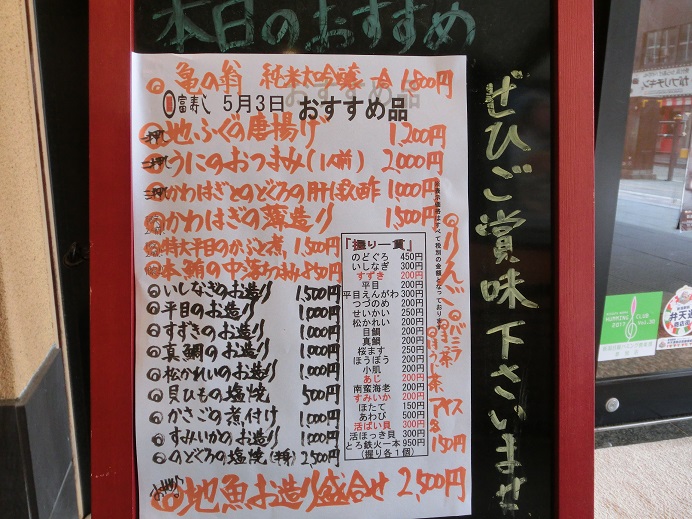 本日のおすすめ
亀の翁 純米大吟醸 冷 1,800円
富寿し 5月3日 おすすめ品
地ふぐの唐揚げ 1,200円
うにのおつまみ(1人前) 2,000円
かわはぎとのどぐろの肝ポン酢 1,000円
かわはぎの薄造り 1,500円
特大平目のかぶと煮 1,500円
本鮪の中落ちつまみ 850円
いしなぎのお造り 1,500円
平目のお造り 1,000円
すずきのお造り 1,000円
真鯛のお造り 1,000円
松かれいのお造り 1,000円
貝ひもの塩焼 500円
かさごの煮付け 1,000円
すみいかのお造り 1,000円
のどぐろの塩焼(半身) 2,500円
地魚お造り盛合せ 2,500円
『握り一貫』
のどぐろ 450円
いしなぎ 300円
すずき 200円
平目 200円
平目えんがわ 300円
つづのめ 200円
せいかい 250円
松かれい 200円
目鯛 200円
真鯛 200円
桜ます 250円
ほうぼう 200円
小肌 200円
あじ 200円
南蛮海老 200円
すみいか 200円
ほたて 150円
あわび 500円
活ばい貝 300円
活ほっき貝 300円
とろ鉄火一本 950円
(握り各1個)
※表示価格はすべて税別の金額となっております
りんご
バニラ
抹茶
アイス
各150円
ぜひご賞味下さいませ
HUMMING CLUB
2017 Vol.10
弁天